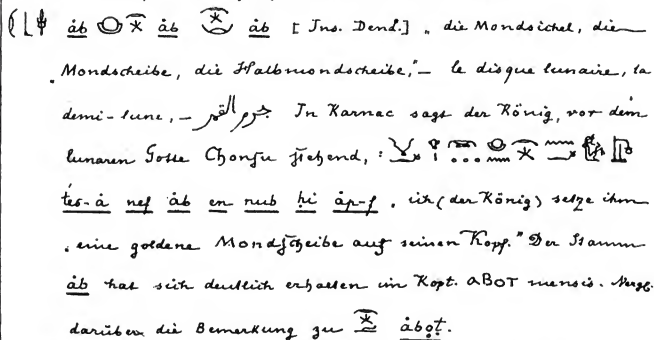 åb åb åb [Ins. Dend.] „die Mondsichel, die
„Mondscheibe, die Halbmondscheibe,“ — le disque lunaire, la
demi-lune, — جرم القمر In Karnac sagt der König, vor dem
lunaren Gotte Chonsu stehend, :
tes-å nef åb en nub ḥi åp-f „ich (der König) setze ihm
„eine goldene Mondscheibe auf seinen Kopf.“ Der Stamm
åb hat sich deutlich erhalten im Kopt. ⲁⲂⲞⲦ mensis. Vergl.
darüber die Bemerkung zu åbot.